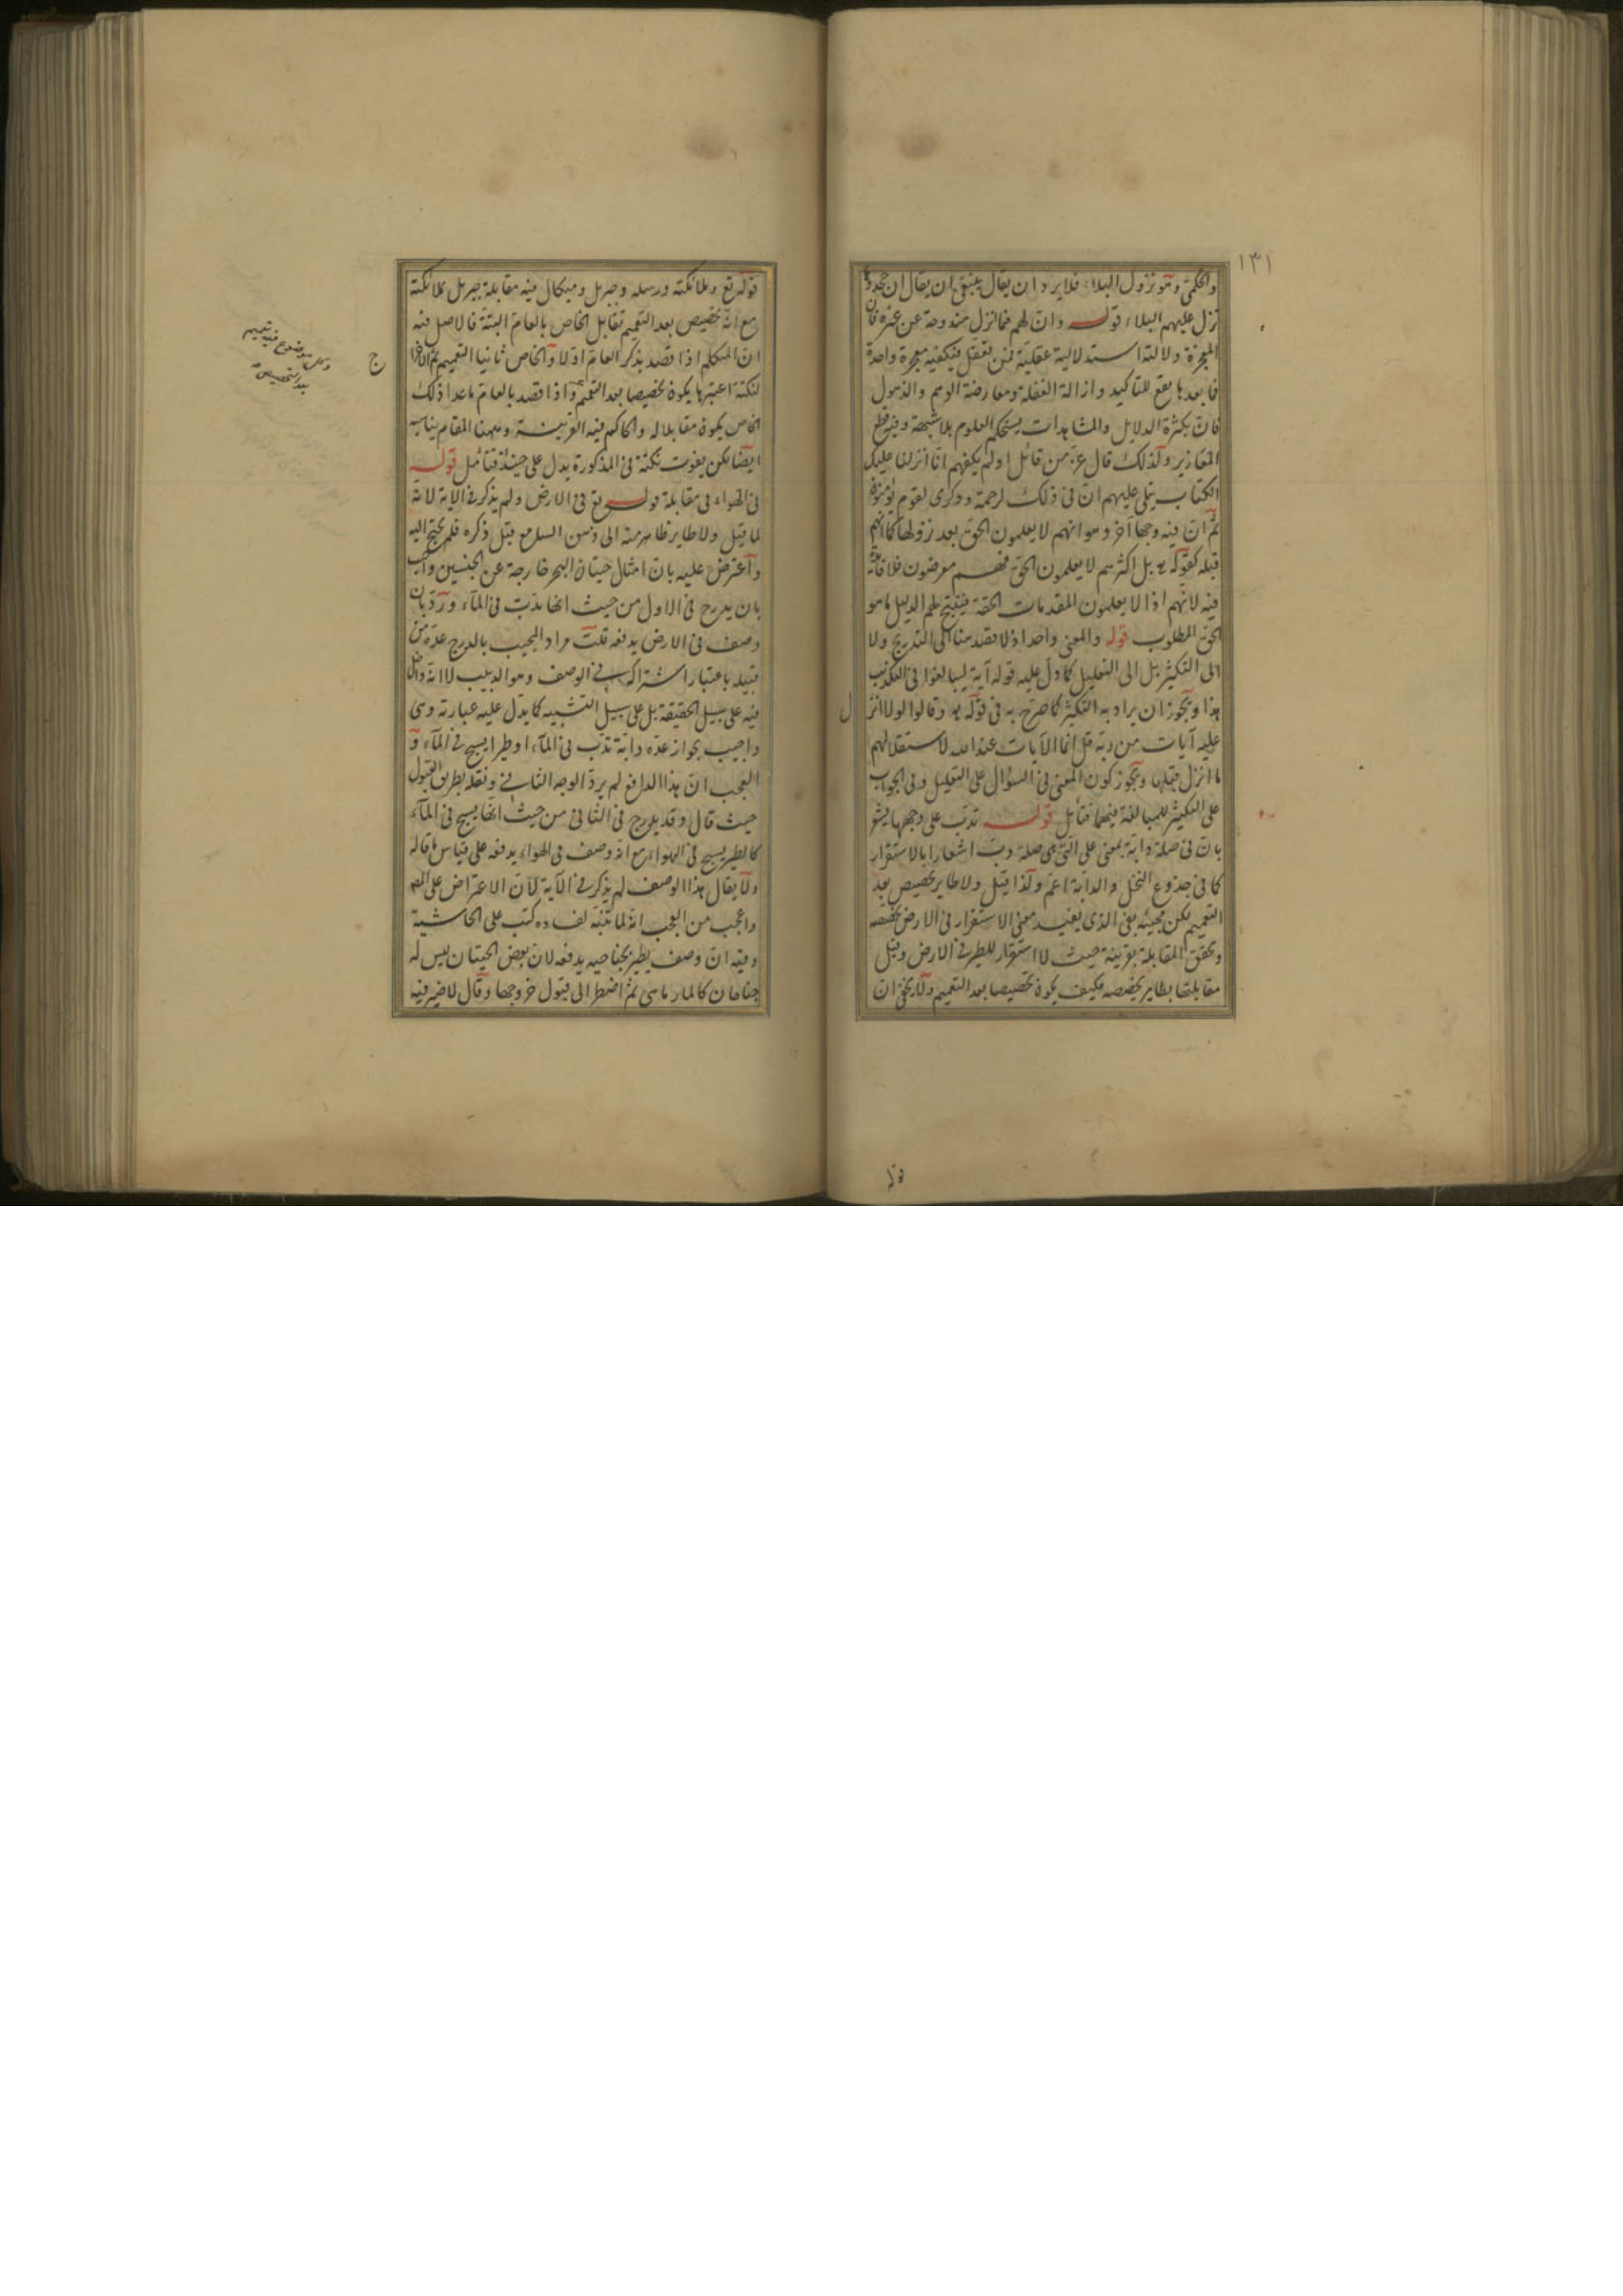 ١٣١
والحكمى وهو نزول البلاء فلا يرد ان يقال ينبغى ان يقال ان
نزل عليهم البلاء قوله وان لهم فيما نزل مندوحة عن غيره فان
المعجزة دلالته استدلالية عقلية فمن تعقل فيكفيه معجزة واحدة
فما بعدها يقع للتاكيد وازالة الغفلة ومعارضة الوهم والذهول
فان بكثرة الدلايل والمشاهدات يستحكم العلوم بلا شبهة
ولذلك قال عز من قائل اولم يكفهم انا انزلنا عليك
الكتاب يتلى عليهم ان فى ذلك لرحمة وذكرى لقوم يؤمنون
ثم ان فيه وجها آخر وهو انهم لا يعلمون الحق بعد نزولها كما انهم
قبله كقوله بل اكثرهم لا يعلمون الحق فهم معرضون فلا فائدة
فيه لانهم اذا لا يعلمون المقدمات الحقة فينتج لهم الدليل ما هو
الحق المطلوب قوله والمعنى واحد اذ لا قصد هنا الى التدريج ولا
الى التكثير بل الى التقليل كما دل عليه قوله آية ليبالغوا فى التكذيب
هذا ويجوز ان يراد به التكثير كما صرح به فى قوله وقالوا لولا انزل
عليه آيات من ربه قل انما الآيات عند الله لاستقلالهم
ما انزل قبلها ويجوز كون المعنى فى السؤال على التقليل وفى الجواب
على التكثير للمبالغة فيهما فتأمل قوله تدب على وجهها
بان فى صلة دابة بمعنى على التى هى صلة دب اشعارا بالاستقرار
كما فى جذوع النخل والدابة اعم ولذا قيل ولا طاير تخصيص بعد
التعميم لكن مجيئه بفى الذى يفيد معنى الاستقرار فى الارض يخصصه
وتحقق المقابلة بقرينة حيث لا استقرار للطير فى الارض وقيل
مقابلتها بطاير يخصصه فكيف يكون تخصيصا بعد التعميم ولا يخفى ان
قوله
قوله تع وملائكته ورسله وجبريل وميكال فيه مقابلة جبريل بملائكته
مع انه تخصيص بعد التعميم تقابل الخاص بالعام البتة فالاصل فيه
ان المتكلم اذا قصد بذكر العام اولا والخاص ثانيا التعميم
لنكتة اعتبرها يكون تخصيصا بعد التعميم واذا قصد بالعام ما عدا ذلك
الخاص يكون مقابلا له والحاكم فيه القرينة وههنا المقام يناسبه
ايضا لكن يفوت نكتة فى المذكورة يدل على حينئذ فتأمل قوله
فى الهواء فى مقابلة قوله تع فى الارض ولم يذكر فى الاية لانه
لما قيل ولا طاير فظاهر منه الى ذهن السامع قبل ذكره فلم يحتج اليه
واعترض عليه بان امثال حيتان البحر خارجة عن الجنسين واجيب
بان يدرج فى الاول من حيث انها تدب فى المآء ورد بان
وصف فى الارض يدفعه قلت مراد المجيب بالدرج عده من
قبيله باعتبار اشتراكه فى الوصف وهو الدبيب لا انه داخل
فيه على سبيل الحقيقة بل على سبيل التشبيه كما يدل عليه عبارته
واجيب بجواز عده دابة تدب فى المآء او طيرا يسبح فى المآء و
العجب ان هذا الدافع لم يرد الوجه الثانى ونقله بطريق القبول
حيث قال وقد يدرج فى الثانى من حيث انها يسبح فى المآء
كالطير يسبح فى الهواء مع انه وصف فى الهواء يدفعه على قياس ما قاله
ولا يقال هذا الوصف لم يذكر فى الآية لان الاعتراض على المص
واعجب من العجب انه لما تنبه لفساده كتب على الحاشية
وفيه ان وصف يطير بجناحيه يدفعه لان بعض الحيتان ليس له
جناحان كالمارماهى ثم اضطر الى قبول خروجها وقال لا ضير فيه
ج
بعد التخصيص